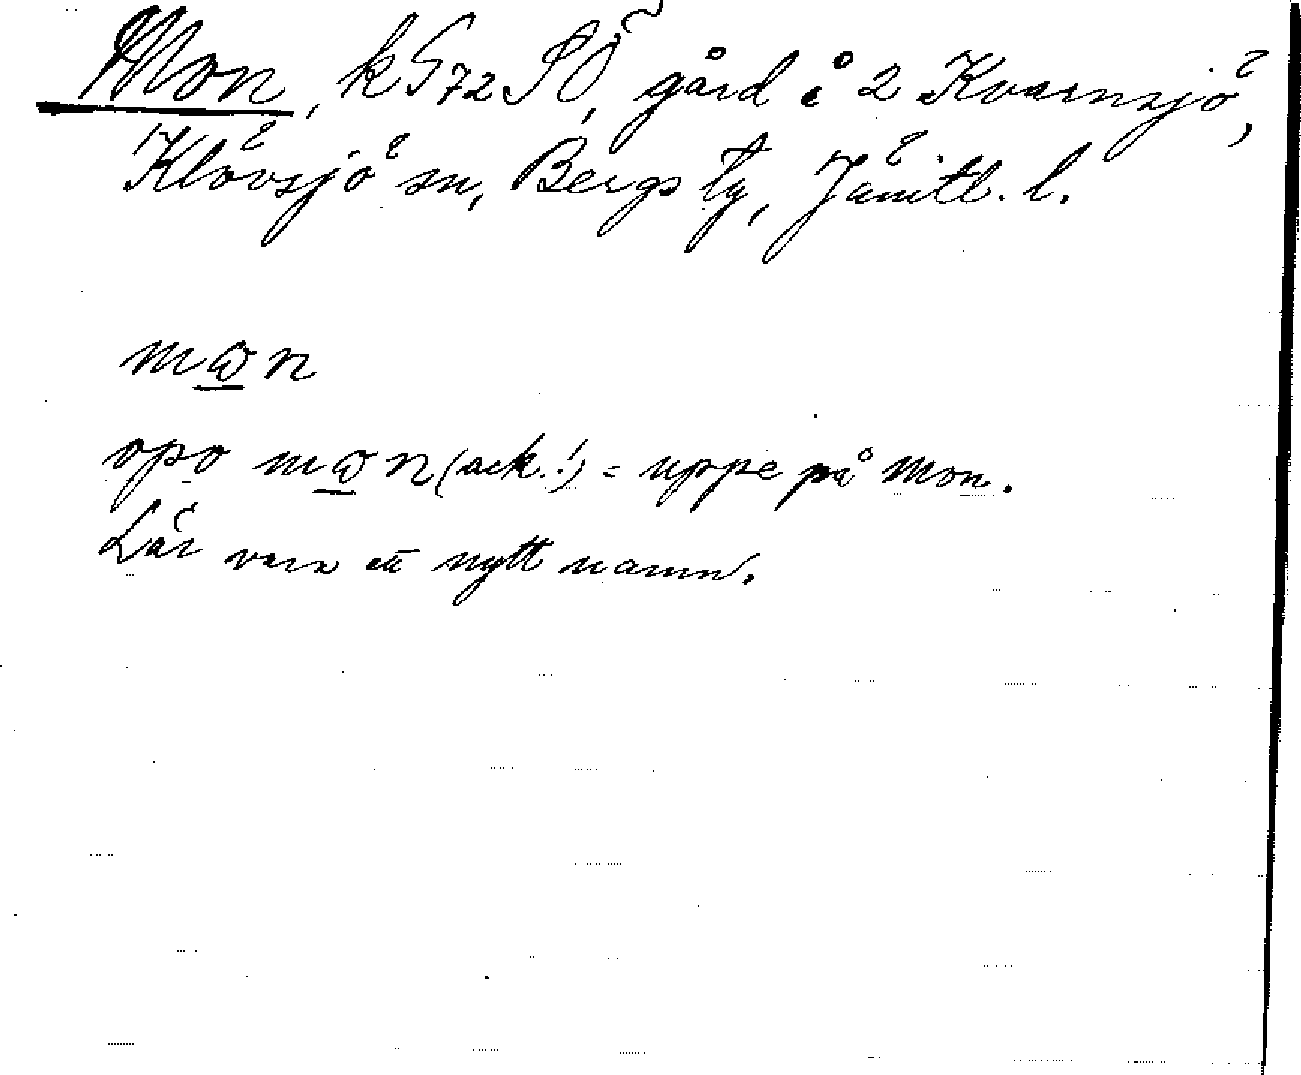 Mon, kG72SÖ, gård i 2 Kvarnsjö,
Klövsjö sn, Bergs tg, Jämtl. l.
mωn
opo mωn (ack.!) = uppe på Mon.
Lär vara ett nytt namn.